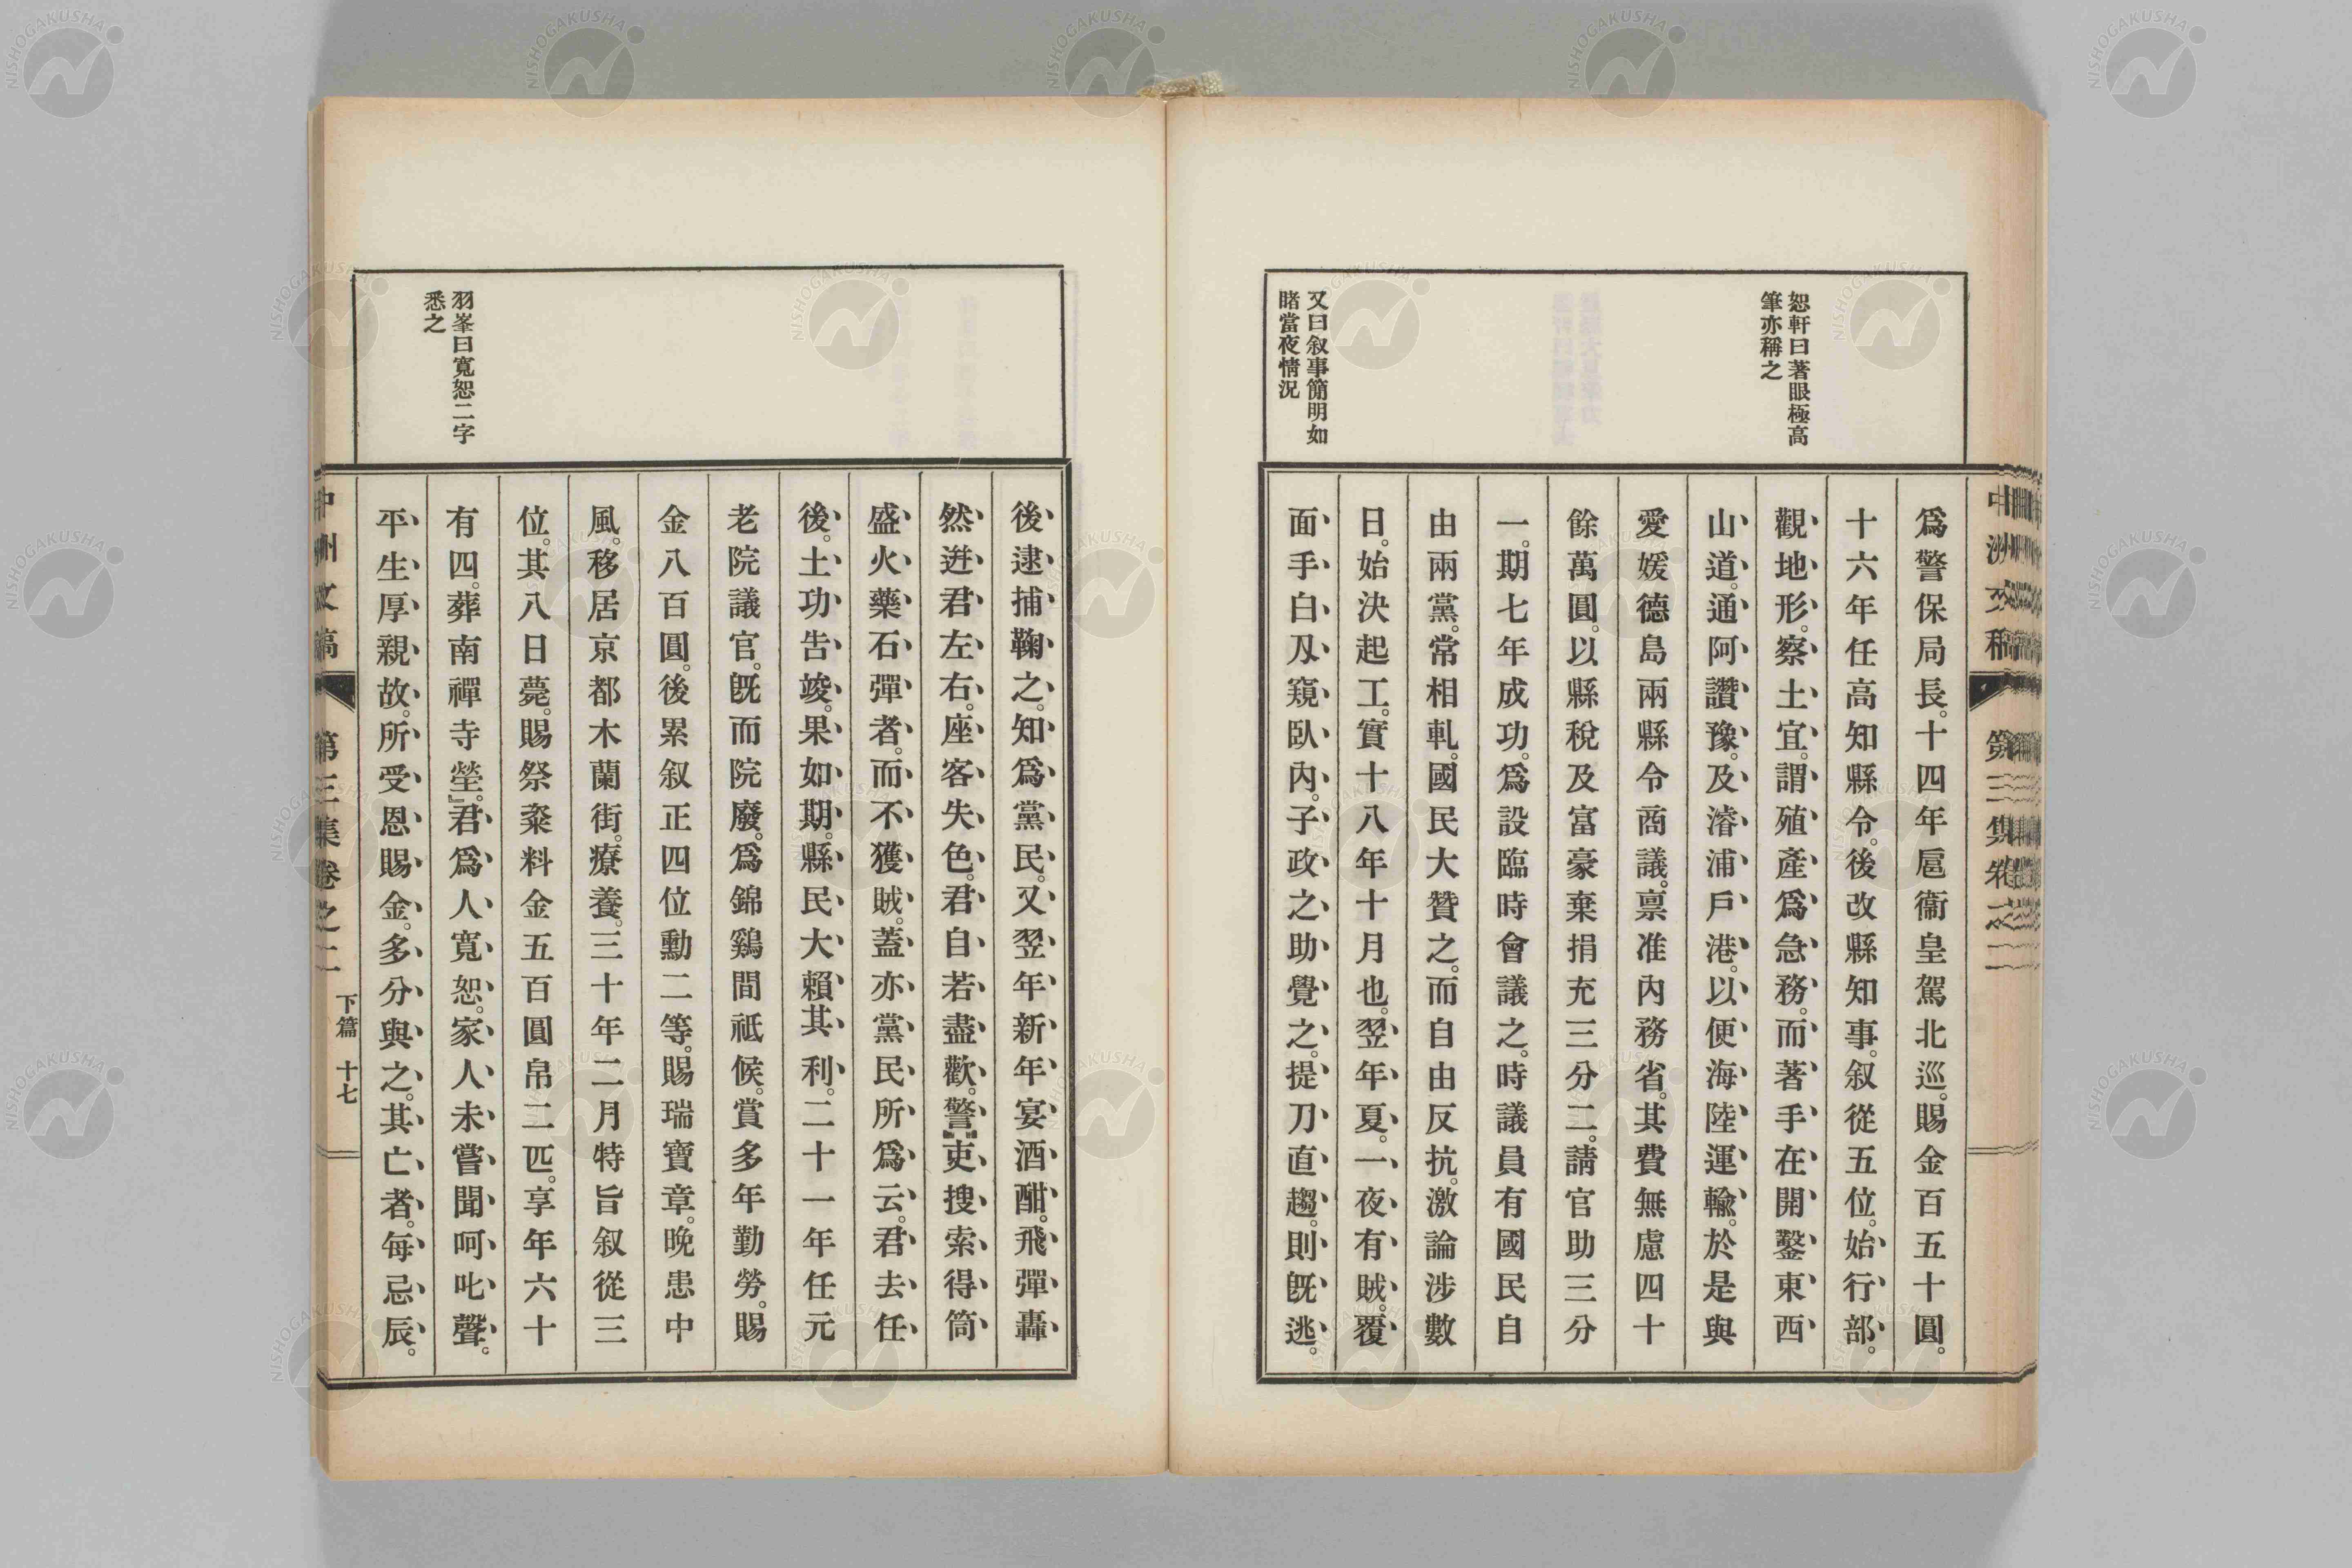 恕軒曰著眼極高
筆亦稱之
又曰叙事簡明如
睹當夜情況
中洲文稿 第三集卷之二
爲警保局長。十四年扈衞皇駕北巡。賜金百五十圓。
十六年任高知縣令。後改縣知事。叙從五位。始行部。
觀地形。察土宜。謂殖產爲急務。而著手在開鑿東西
山道。通阿讚豫。及濬浦戶港。以便海陸運輸。於是與
愛媛德島兩縣令商議。禀准內務省。其費無慮四十
餘萬圓。以縣稅及富豪棄捐充三分二。請官助三分
一。期七年成功。爲設臨時會議之。時議員有國民自
由兩黨。常相軋。國民大贊之。而自由反抗。激論涉數
日。始決起工。實十八年十月也。翌年夏。一夜有賊。覆
面手白刃。窺臥內。子政之助覺之。提刀直趨。則旣逃。
羽峯曰寬恕二字
悉之
後逮捕鞠之。知爲黨民。又翌年新年宴酒酣。飛彈轟
然迸君左右。座客失色。君自若盡歡。警吏搜索得筒
盛火藥石彈者。而不獲賊。蓋亦黨民所爲云。君去任
後。土功告竣。果如期。縣民大賴其利。二十一年任元
老院議官。旣而院廢。爲錦鷄間祗候。賞多年勤勞。賜
金八百圓。後累叙正四位勳二等。賜瑞寶章。晚患中
風。移居京都木蘭街。療養。三十年二月特旨叙從三
位。其八日薨。賜祭粢料金五百圓帛二匹。享年六十
有四。葬南禪寺塋。』君爲人寬恕。家人未嘗聞呵叱聲。
平生厚親故。所受恩賜金。多分與之。其亡者。每忌辰。
中洲文稿 第三集卷之二 下篇 十七